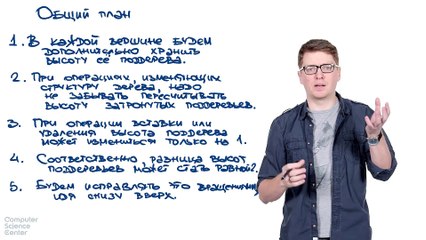 Общий план
1. В каждой вершине будем
дополнительно хранить
высоту её поддерева.
2. При операциях, изменяющих
структуру дерева, надо
не забывать пересчитывать
высоту затронутых поддеревьев.
3. При операции вставки или
удаления высота поддерева
может измениться только на 1.
4. Соответственно, разница высот
поддеревьев может стать равной 2.
5. Будем исправлять это вращениями
идя снизу вверх.
Computer
Science
Center